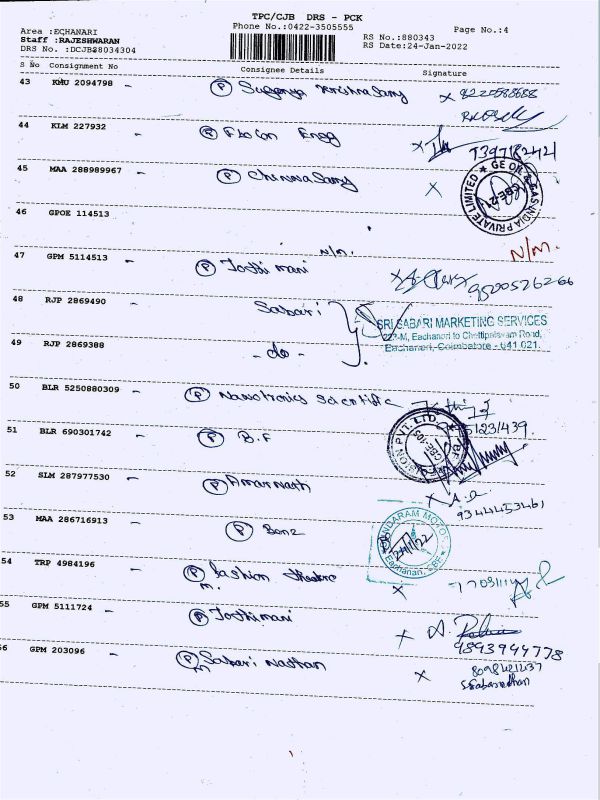 TPC/CJB DRS - PCK
Area :EQHANARI Phone No.:0422-3505555 Page No.:4
Staff :RAJESHWARAN RS No.:880343
DRS No. :DCJB28034304 RS Date:24-Jan-2022
S No Consignment No Consignee Details Signature
43 KMU 2094798 - P Suganya Krishnasamy x 8220588688
44 KLM 227932 - P Flocon Engg x
7397182421
45 MAA 288989967 - P Chinnasamy x
GE OIL & GAS INDIA PRIVATE LIMITED
46 GPOE 114513 N/M. N/M.
47 GPM 5114513 - P Josthi mani x 9500526266
48 RJP 2869490 - Sabari
SRI SABARI MARKETING SERVICES
22/-M, Eachanari to Chettipalayam Road,
Eachanari, Coimbatore - 641 021.
49 RJP 2869388 - do -
50 BLR 5250880309 - P Nanotronics Scientific
51 BLR 690301742 - P B.F
PVT. LTD. CBE-105
52 SLM 287977530 - P Amarnath x A.
9344453461
53 MAA 286716913 P Bonz
SUNDARAM MOTORS
Eachanari, CBE
54 TRP 4984196 - P Fashion theatre x
m.
55 GPM 5111724 - P Josthimani x
9893944778
56 GPM 203096 - P Sabari Nathan x 8098421437
m S.Sabarinathan